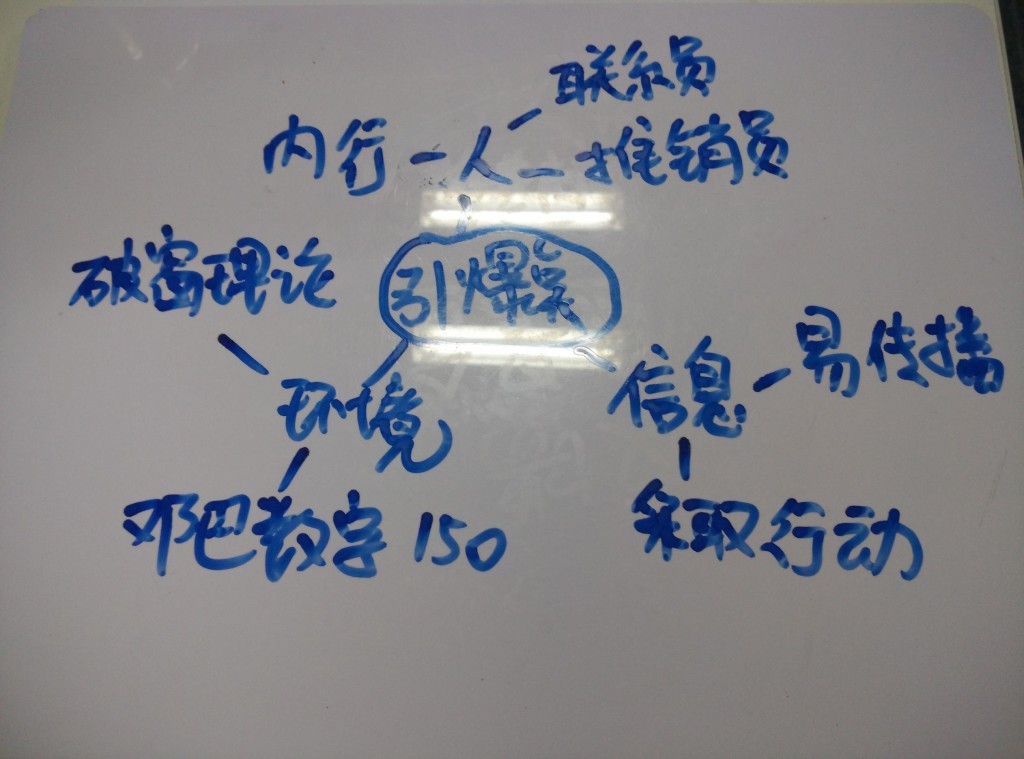 联系员
内行 - 人 - 推销员
破窗理论
引爆点
易传播
信息
环境
邓巴数字 150
采取行动